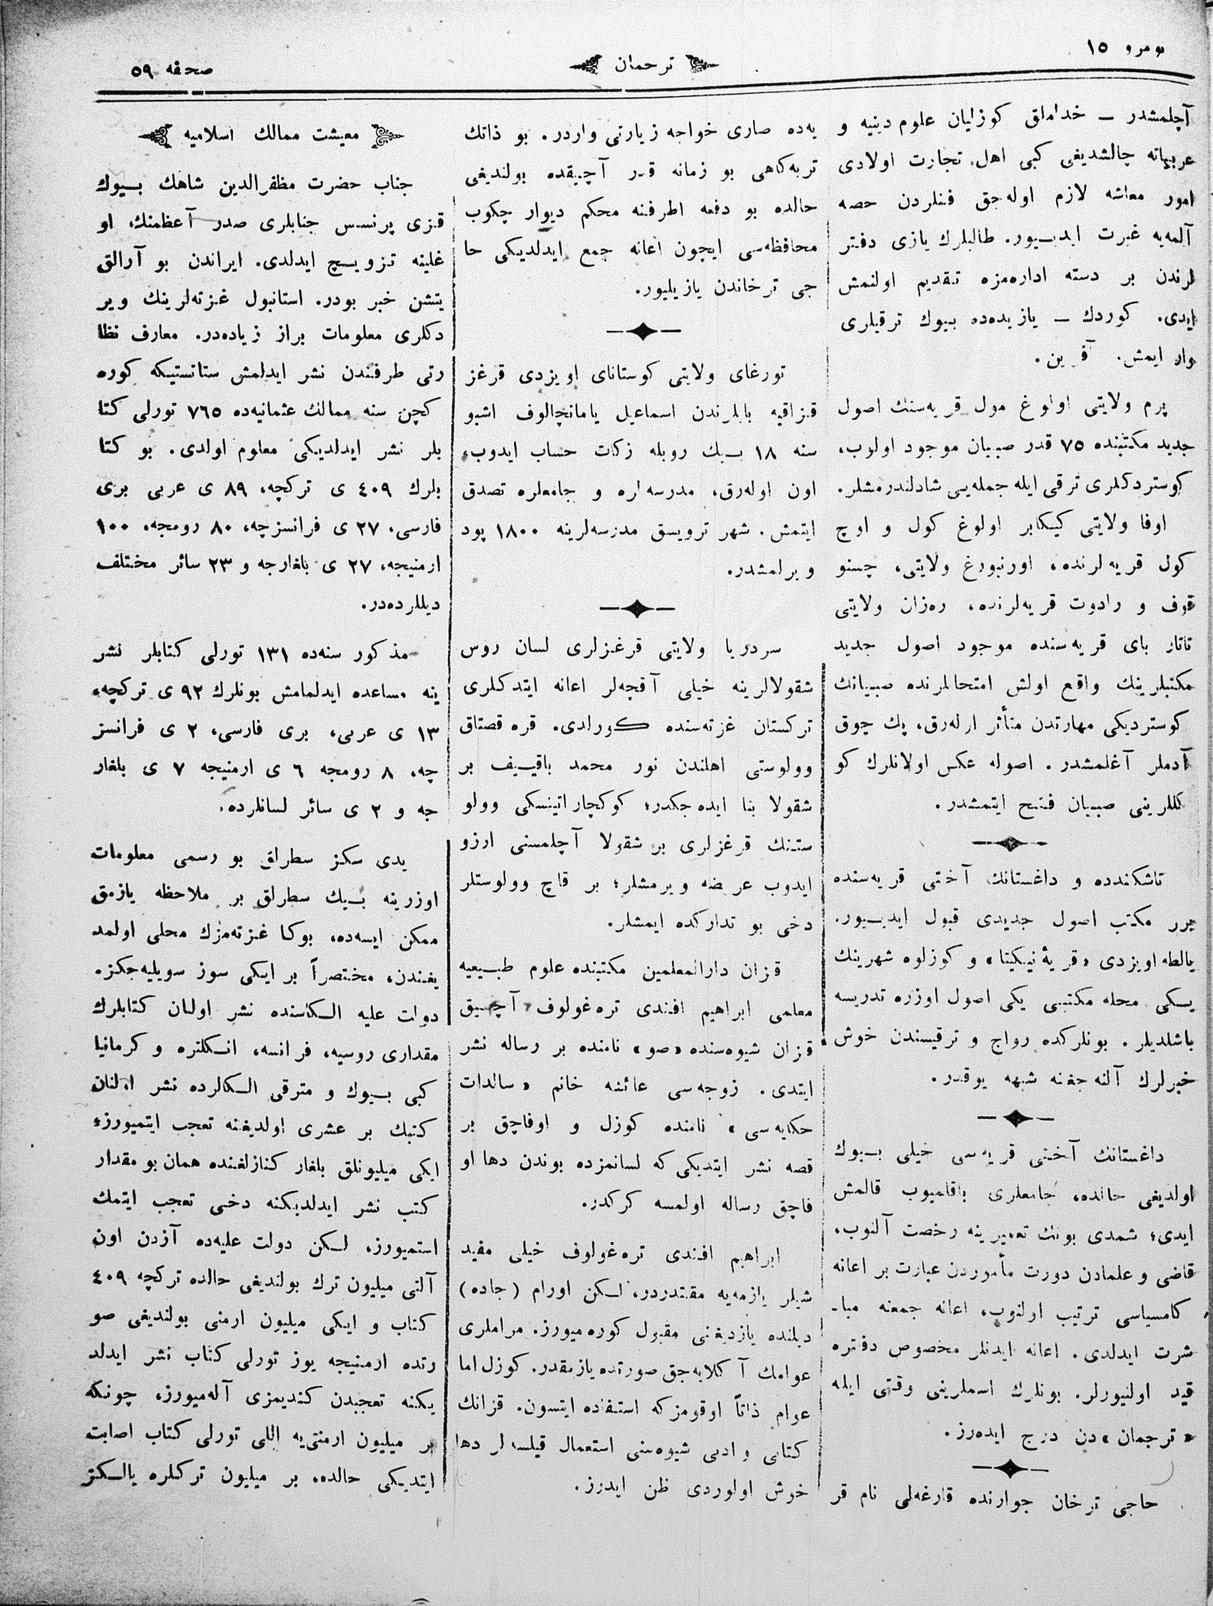 نومرو ١٥
ترجمان
صحفه ٥٩
آچلمشدر ــ خداملق كوزلیان علوم دینیه و
عربیاته چالشدیغی كبی اهل تجارت اولادی
امور معاشه لازم اوله‌جق فنلردن حصه
آلمه‌یه غیرت ایدییور. طالبلرك یازی دفتر
لرندن بر دسته اداره‌مزه تقدیم اولنمش
ایدی. كوردك ــ یازیده‌ده بیوك ترقیلری
وار ایمش. آفرین.
پرم ولایتی اولوغ مول قریه‌سنك اصول
جدید مكتبنده ٧٥ قدر صبیان موجود اولوب،
كوستردكلری ترقی ایله جمله‌یی شادلندرمشلر.
اوفا ولایتی كیكابر اولوغ كول و اوچ
كول قریه‌لرنده، اورنبورغ ولایتی، چسنو
قوف و رادوت قریه‌لرنده، ره‌زان ولایتی
تاتار بای قریه‌سنده موجود اصول جدید
مكتبلرینك واقع اولش امتحانلرنده صبیانك
كوستردیكی مهارتدن متأثر اوله‌رق، پك چوق
آدملر آغلمشدر. اصوله عكس اولانلرك كو
كللرینی صبیان فتح ایتمشدر.
تاشكندده و داغستانك آختی قریه‌سنده
برر مكتب اصول جدیدی قبول ایدییور.
یالطه اویزدی «قریۀ نیكیتا» و كوزلوه شهرینك
یكی محله مكتبی یكی اصول اوزره تدریسه
باشلدیلر. بونلركده رواج و ترقیسندن خوش
خبرلرك آلنه‌جغنه شبهه یوقدر.
داغستانك آختی قریه‌سی خیلی بیوك
اولدیغی حالده، جامعلری باقلمیوب قالمش
ایدی؛ شمدی بونك تعمیرینه رخصت آلنوب،
قاضی و علمادن دورت مأموردن عبارت بر اعانه
كامسیاسی ترتیب اولنوب، اعانه جمعنه مبا ـ
شرت ایدلدی. اعانه ایدنلر مخصوص دفتره
قید اولنیورلر. بونلرك اسملرینی وقتی ایله
«ترجمان» دن درج ایده‌رز.
حاجی ترخان جوارنده قارغه‌لی نام قر
یه‌ده صاری خواجه زیارتی واردر. بو ذاتك
تربه‌كاهی بو زمانه قدر آچیقده بولندیغی
حالده بو دفعه اطرفنه محكم دیوار چكوب
محافظه‌سی ایچون اعانه جمع ایدلدیكی حا
جی ترخاندن یازیلیور.
تورغای ولایتی كوستانای اویزدی قرغز
قزاقیه بایلرندن اسماعیل یامانچالوف اشبو
سنه ١٨ بیك روبله زكات حساب ایدوب،
اون اوله‌رق، مدرسه‌لره و جامعلره تصدق
ایتمش. شهر ترویسق مدرسه‌لرینه ١٨٠٠ پود
ویرلمشدر.
سردریا ولایتی قرغزلری لسان روس
شقولالرینه خیلی آقچه‌لر اعانه ایتدكلری
تركستان غزته‌سنده كورلدی. قره قصتاق
وولوستی اهلندن نور محمد باقییف بر
شقولا بنا ایده‌جكدر؛ كوكچاراتینسكی وولو
ستنك قرغزلری بر شقولا آچلمسنی ارزو
ایدوب عریضه ویرمشلر؛ بر قاچ وولوستلر
دخی بو تداركده ایمشلر.
قزان دارالمعلمین مكتبنده علوم طبیعیه
معلمی ابراهیم افندی تره‌غولوف آچیق
قزان شیوه‌سنده «صو» نامنده بر رساله نشر
ایتدی. زوجه‌سی عائشه خانم «سالدات
حكایه‌سی» نامنده كوزل و اوفاچق بر
قصه نشر ایتدیكی كه لسانمزده بوندن دها او
فاچق رساله اولمسه كركدر.
ابراهیم افندی تره‌غولوف خیلی مفید
شیلر یازمه‌یه مقتدردر، لكن اورام (جاده)
دیلنده یازدیغنی مقبول كوره‌میورز. مراملری
عوامك آكلایه‌جق صورتده یازمقدر. كوزل اما
عوام ذاتاً اوقومزكه استفاده ایتسون. قزانك
كتابی و ادبی شیوه‌سنی استعمال قیلسه‌لر دها
خوش اولوردی ظن ایدرز.
معیشت ممالك اسلامیه
جناب حضرت مظفرالدین شاهك بیوك
قزی پرنسس جنابلری صدر آعظمنك، او
غلینه تزویج ایدلدی. ایراندن بو آرالق
یتشن خبر بودر. استانبول غزته‌لرینك ویر
دكلری معلومات براز زیاده‌در. معارف نظا
رتی طرفندن نشر ایدلمش ستاتستیكه كوره
كچن سنه ممالك عثمانیه‌ده ٧٦٥ تورلی كتا
بلر نشر ایدلدیكی معلوم اولدی. بو كتا
بلرك ٤٠٩ ی تركچه، ٨٩ ی عربی بری
فارسی، ٢٧ ی فرانسزچه، ٨٠ رومجه، ١٠٠
ارمنیجه، ٢٧ ی باغارجه و ٢٣ سائر مختلف
دیللرده‌در.
مذكور سنه‌ده ١٣١ تورلی كتابلر نشر
ینه مساعده ایدلمامش بونلرك ٩٢ ی تركچه،
١٣ ی عربی، بری فارسی، ٢ ی فرانسز
چه، ٨ رومجه ٦ ی ارمنیجه ٧ ی بلغار
جه و ٢ ی سائر لسانلرده.
یدی سكز سطرلق بو رسمی معلومات
اوزرینه بیك سطرلق بر ملاحظه یازمق
ممكن ایسه‌ده، بوكا غزته‌مزك محلی اولمد
یغندن، مختصراً بر ایكی سوز سویلیه‌جكز.
دولت علیه الكاسنده نشر اولنان كتابلرك
مقداری روسیه، فرانسه، انكلتره و كرمانیا
كبی بیوك و مترقی الكالرده نشر اولنان
كتبك بر عشری اولدیغنه تعجب ایتمیورز؛
ایكی میلیونلق بلغار كنازلغنده همان بو مقدار
كتب نشر ایدلدیكنه دخی تعجب ایتمك
استمیورز، لكن دولت علیه‌ده آزدن اون
آلتی میلیون ترك بولندیغی حالده تركچه ٤٠٩
كتاب و ایكی میلیون ارمنی بولندیغی صو
رتده ارمنیجه یوز تورلی كتاب نشر ایدلد
یكنه تعجبدن كندیمزی آله‌میورز، چونكه
بر میلیون ارمنی‌یه اللی تورلی كتاب اصابت
ایتدیكی حالده، بر میلیون تركلره یالكز